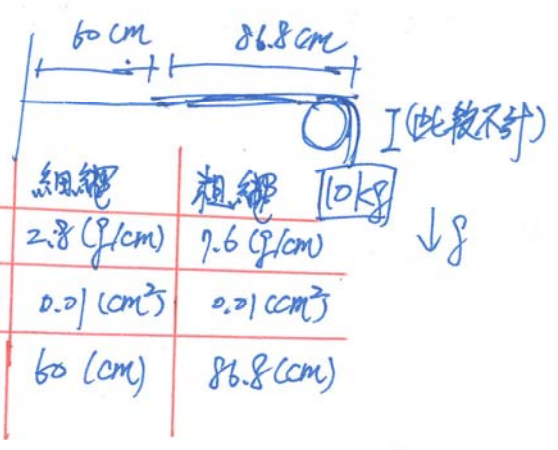 60 cm 86.8 cm
I (此段不計)
細繩 粗繩 10kg
2.8 (g/cm) 7.6 (g/cm) ↓g
0.01 (cm²) 0.01 (cm²)
60 (cm) 86.8 (cm)